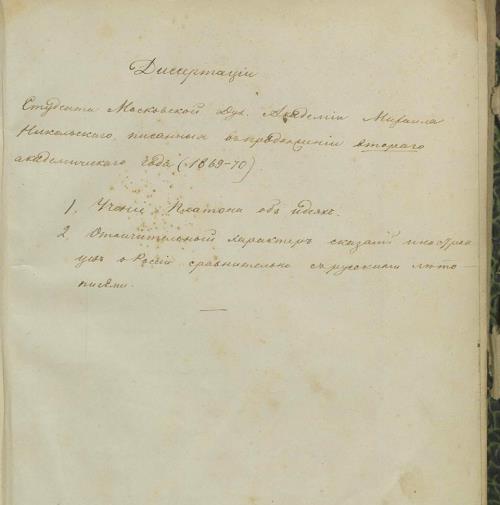 Диссертаціи
Студента Московской Дух. Академіи Михаила
Никольскаго, писанныя въ продолженіи втораго
академическаго года (1869-70).
1. Ученіе Платона объ идеяхъ.
2. Отличительный характеръ сказаній иностран
цевъ о Россіи сравнительно съ русскими лѣто-
писями.